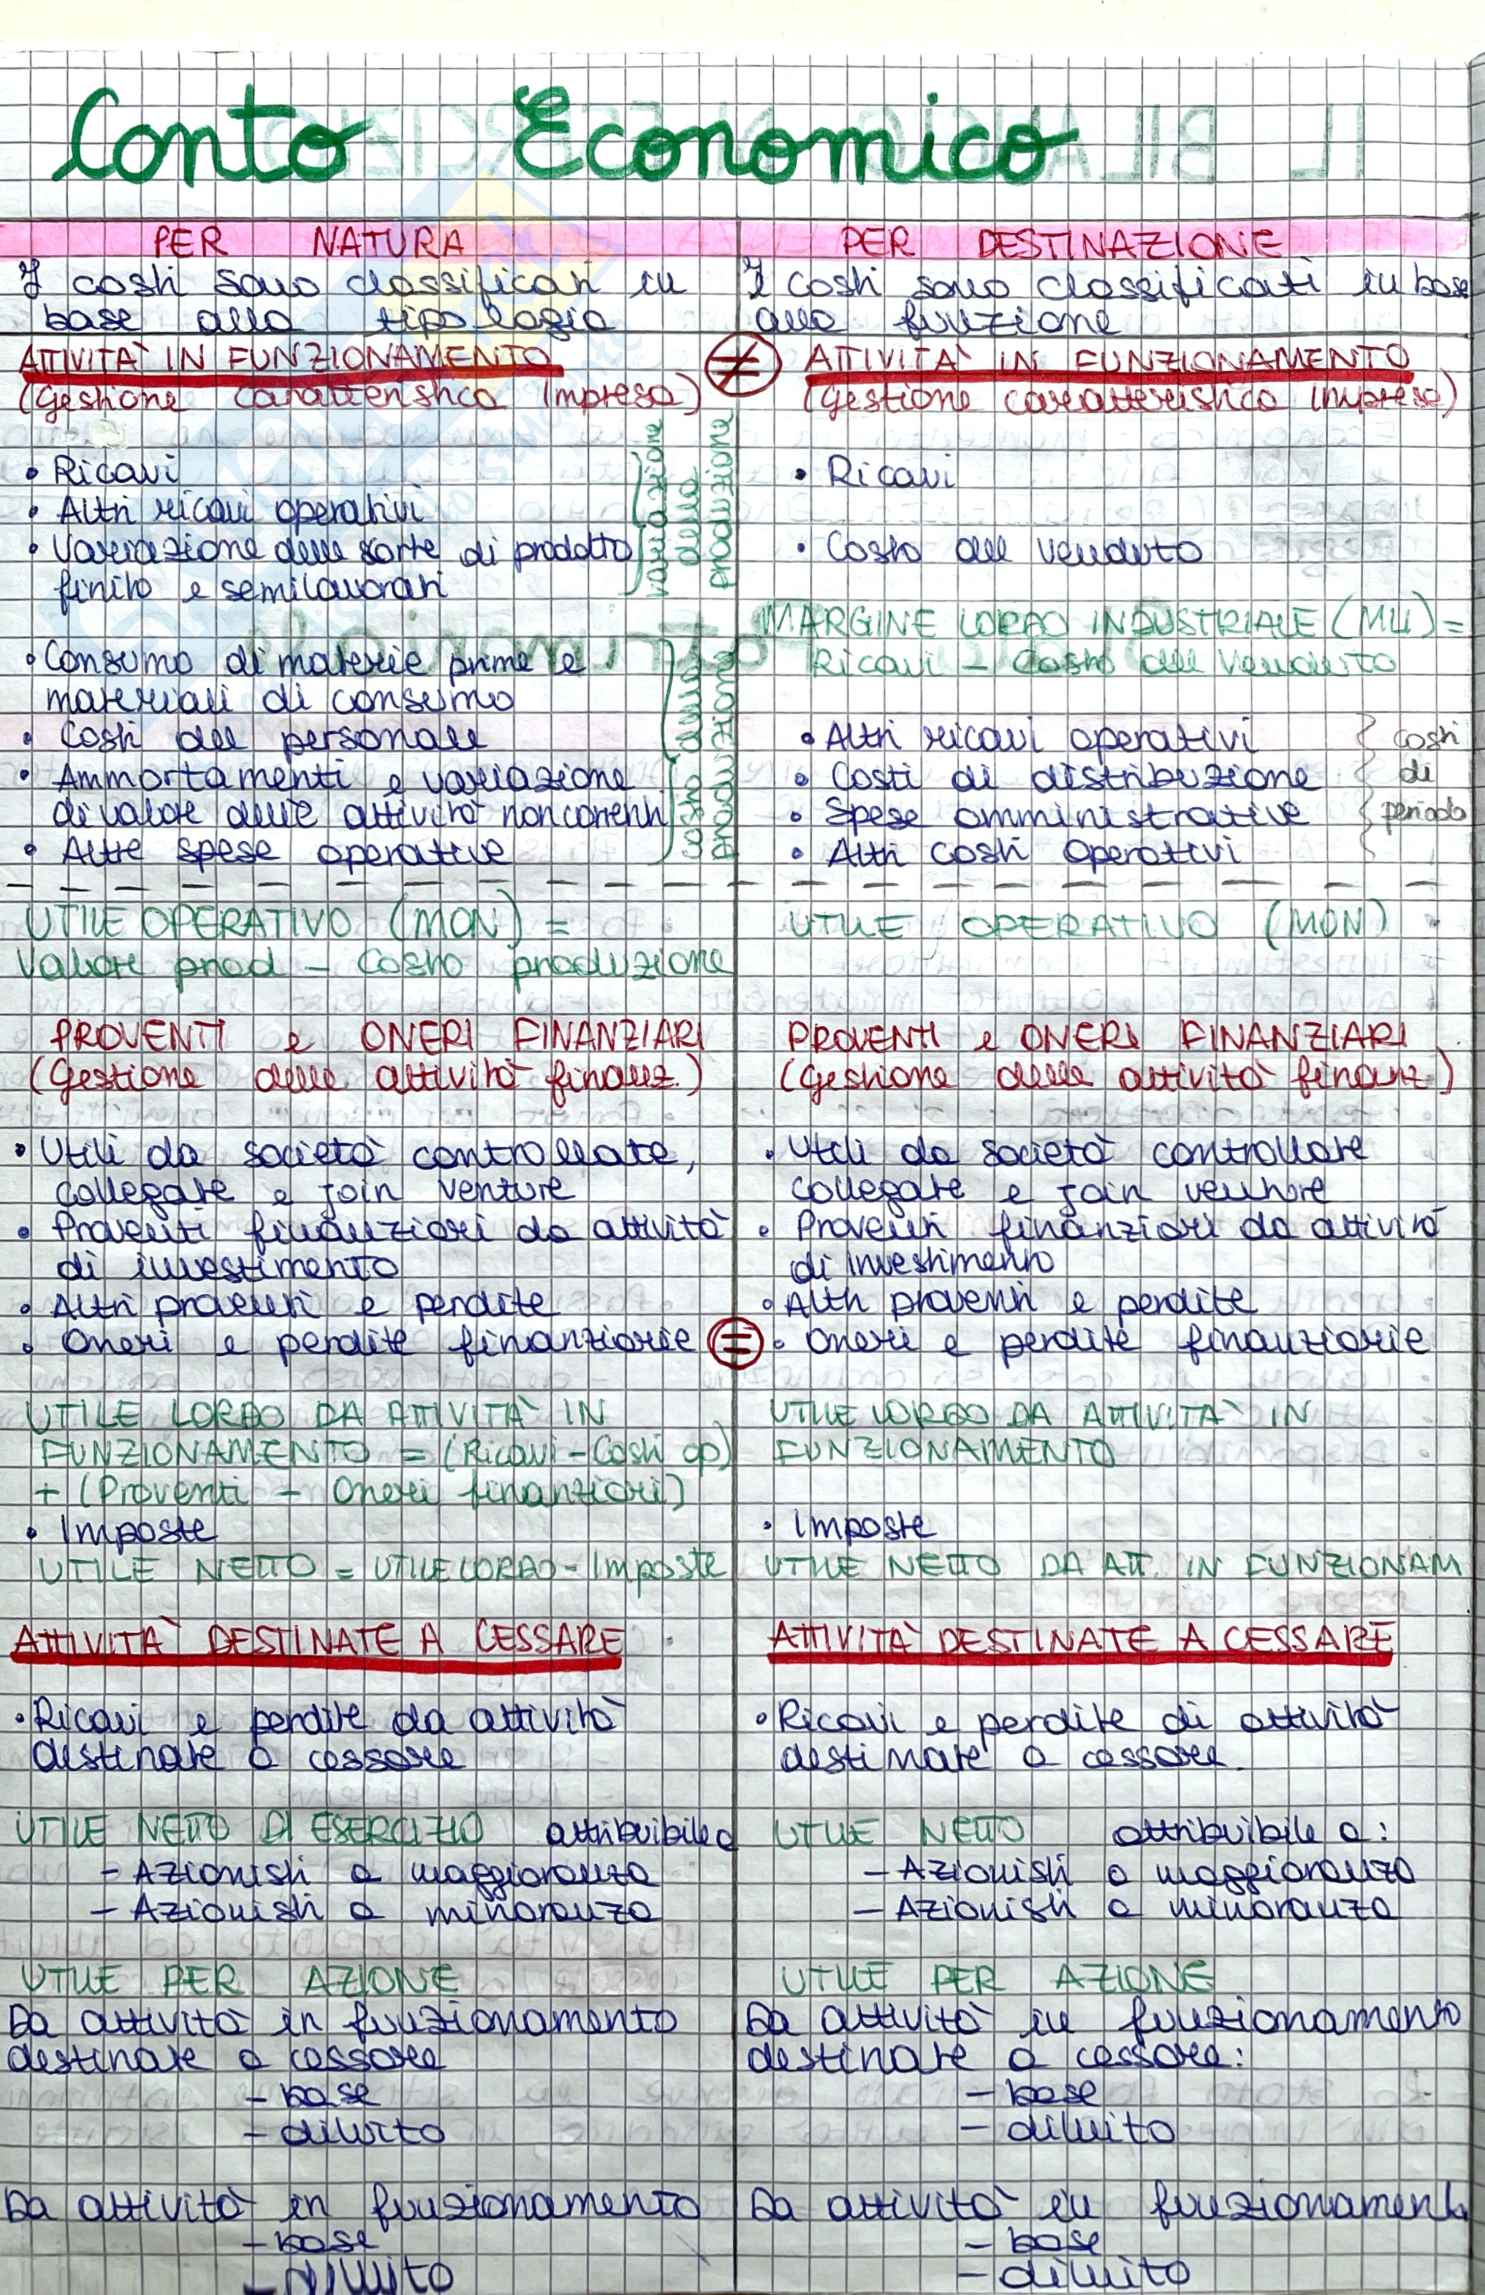 Conto Economico
PER NATURA
I costi sono classificati in
base alla tipologia
ATTIVITÀ IN FUNZIONAMENTO
(Gestione caratteristica Impresa)
• Ricavi
• Altri ricavi operativi
• Variazione delle scorte di prodotto
finito e semilavorati
variazione
della
produzione
• Consumo di materie prime e
materiali di consumo
• Costi del personale
• Ammortamenti e variazione
di valore delle attività non correnti
• Altre spese operative
costo della
produzione
UTILE OPERATIVO (MON) =
Valore prod - Costo produzione
PROVENTI e ONERI FINANZIARI
(Gestione delle attività finanz.)
• Utili da società controllate,
collegate e join venture
• Proventi finanziari da attività
di investimento
• Altri proventi e perdite
• Oneri e perdite finanziarie
UTILE LORDO DA ATTIVITÀ IN
FUNZIONAMENTO = (Ricavi - Costi op)
+ (Proventi - Oneri finanziari)
• Imposte
UTILE NETTO = UTILE LORDO - Imposte
ATTIVITÀ DESTINATE A CESSARE
• Ricavi e perdite da attività
destinate a cessare
UTILE NETTO DI ESERCIZIO attribuibile a
- Azionisti a maggioranza
- Azionisti a minoranza
UTILE PER AZIONE
Da attività in funzionamento
destinate a cessare
- base
- diluito
Da attività in funzionamento
- base
- diluito
≠
=
PER DESTINAZIONE
I costi sono classificati in base
alla funzione
ATTIVITÀ IN FUNZIONAMENTO
(Gestione caratteristica Impresa)
• Ricavi
• Costo del venduto
MARGINE LORDO INDUSTRIALE (MLI) =
Ricavi - Costo del Venduto
• Altri ricavi operativi
• Costi di distribuzione
• Spese amministrative
• Altri costi operativi
costi
di
periodo
UTILE OPERATIVO (MON)
PROVENTI e ONERI FINANZIARI
(Gestione delle attività finanz.)
• Utili da società controllate
collegate e join venture
• Proventi finanziari da attività
di investimento
• Altri proventi e perdite
• Oneri e perdite finanziarie
UTILE LORDO DA ATTIVITÀ IN
FUNZIONAMENTO
• Imposte
UTILE NETTO DA ATT. IN FUNZIONAM
ATTIVITÀ DESTINATE A CESSARE
• Ricavi e perdite di attività
destinate a cessare.
UTILE NETTO attribuibile a:
- Azionisti a maggioranza
- Azionisti a minoranza
UTILE PER AZIONE
Da attività in funzionamento
destinate a cessare:
- base
- diluito
Da attività in funzionament
- base
- diluito